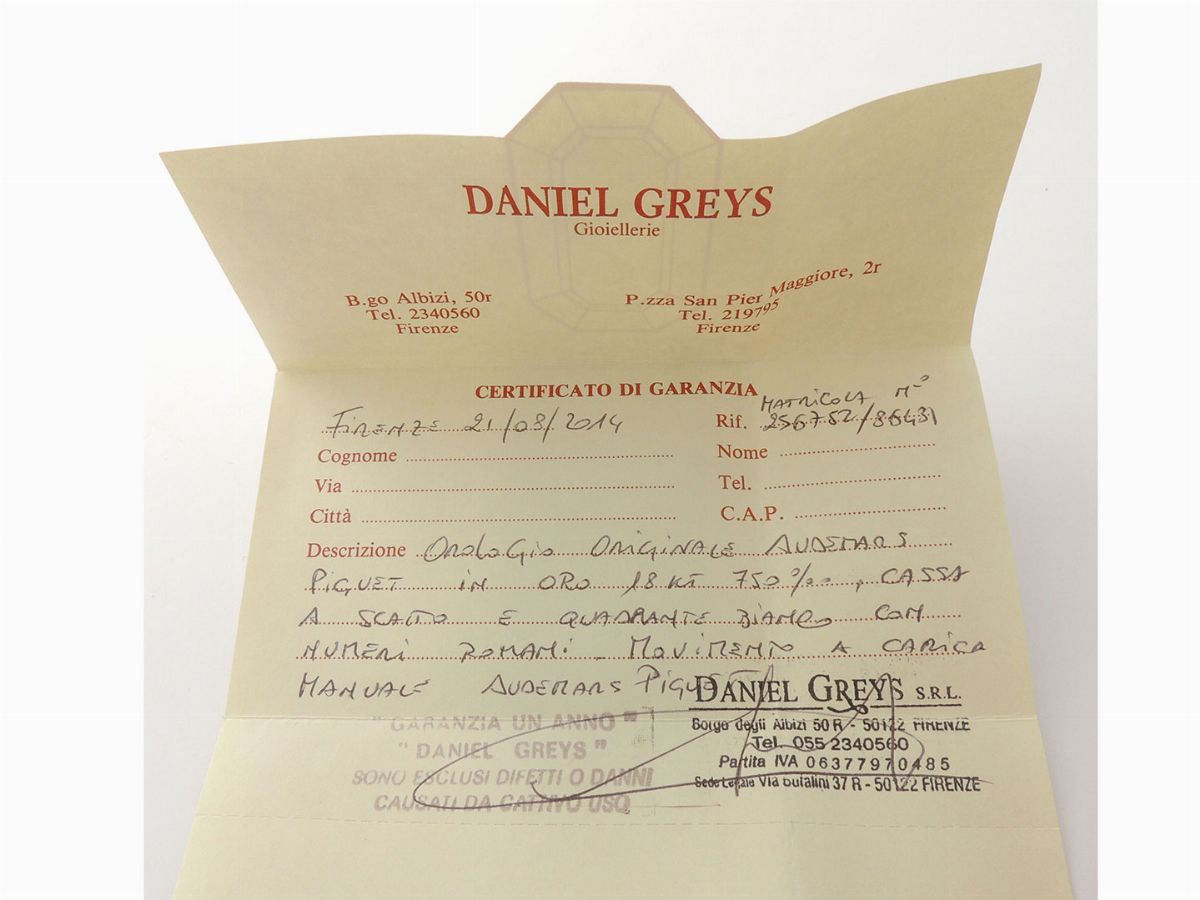 DANIEL GREYS
Gioiellerie
B.go Albizi, 50r
Tel. 2340560
Firenze
P.zza San Pier Maggiore, 2r
Tel. 219795
Firenze
CERTIFICATO DI GARANZIA
MATRICOLA N°
FIRENZE 21/08/2014
Rif.
Cognome
Nome
Via
Tel.
Città
C.A.P.
Descrizione OROLOGIO ORIGINALE AUDEMARS
PIGUET IN ORO 18 KT 750‰, CASSA
A SCATTO E QUADRANTE BIANCO CON
NUMERI ROMANI - MOVIMENTO A CARICA
MANUALE AUDEMARS PIGUET
DANIEL GREYS S.R.L.
Borgo degli Albizi 50 R - 50122 FIRENZE
Tel. 055 2340560
Partita IVA 06377970485
Sede Legale Via Bufalini 37 R - 50122 FIRENZE
"GARANZIA UN ANNO"
"DANIEL GREYS"
SONO ESCLUSI DIFETTI O DANNI
CAUSATI DA CATTIVO USO